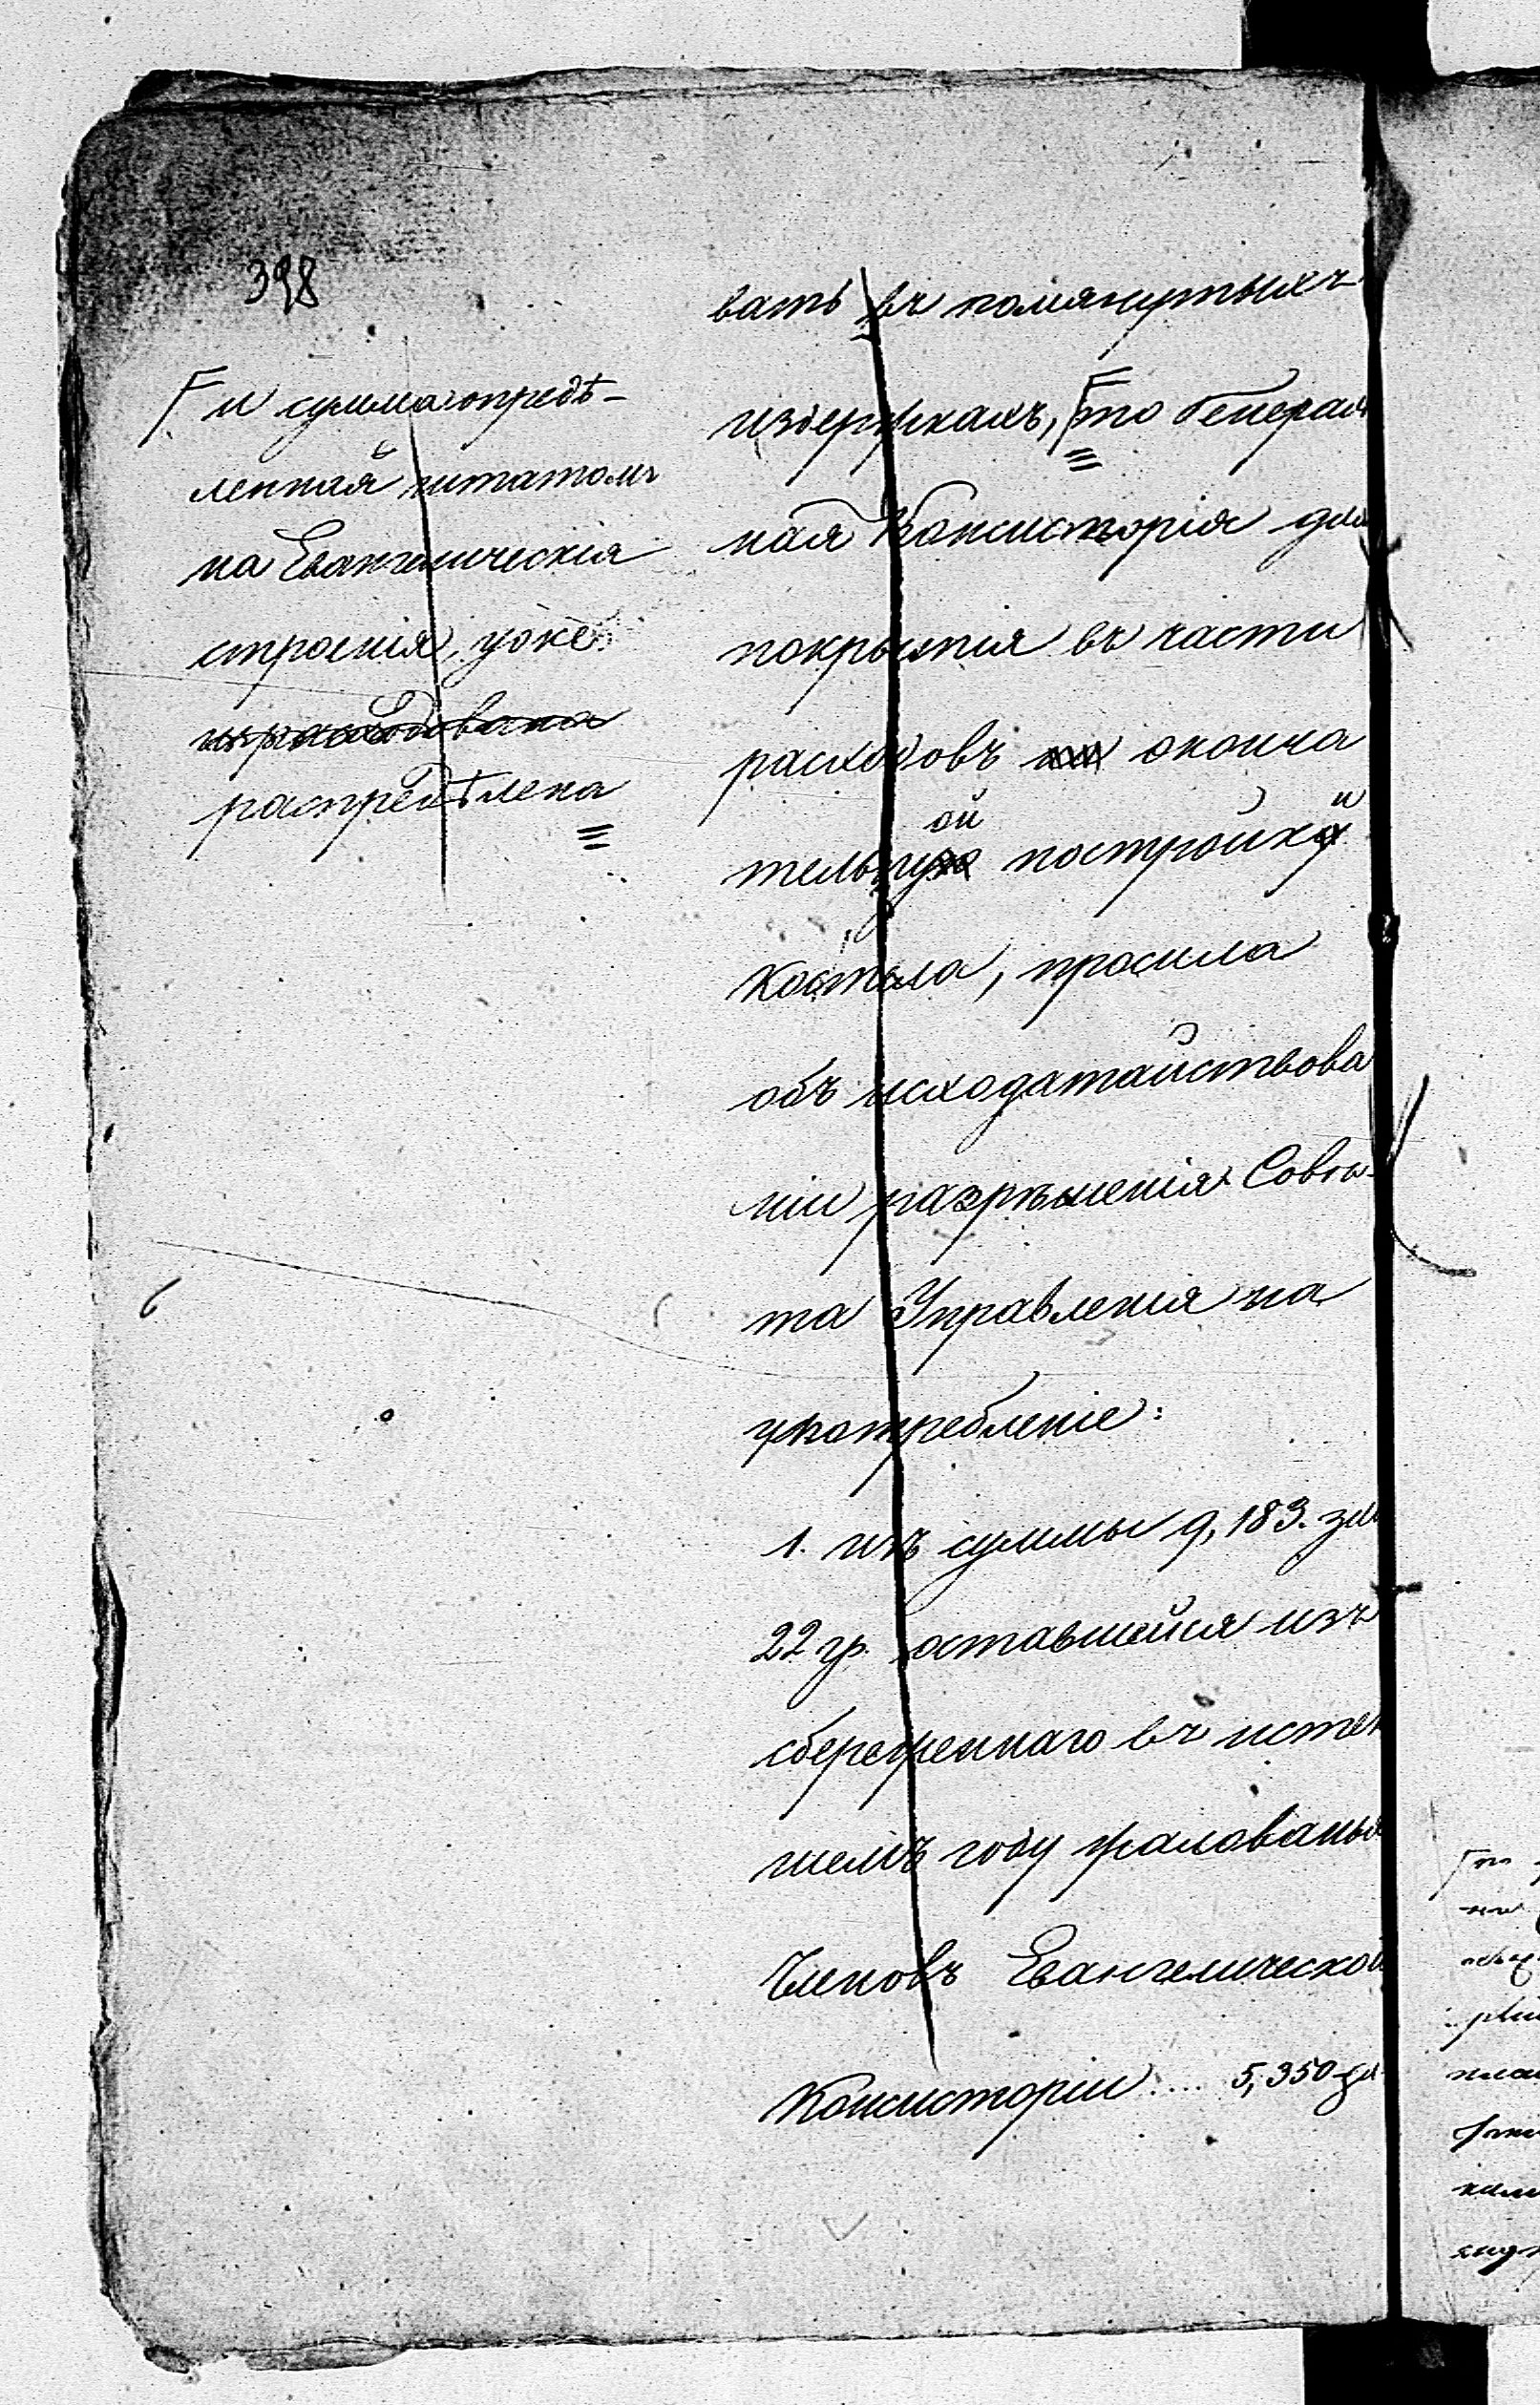 398
и сумма опредѣ-
ленная штатомъ
на Евангелическія
строенія, уже
израсходована
распредѣлена
вать въ помянутыхъ
издержкахъ, то Генераль
ная Консисторія для
покрытія въ части
расходовъ на оконча
тельную ой постройку и
Костела, просила
объ исходатайствова
ніи разрѣшенія Совѣ-
та Управленія на
употребленіе:
1. изъ суммы 9,183. зл
22 гр. оставшейся изъ
сбереженнаго въ истек
шемъ году жалованья
Членовъ Евангелической
Консисторіи .... 5,350 зл